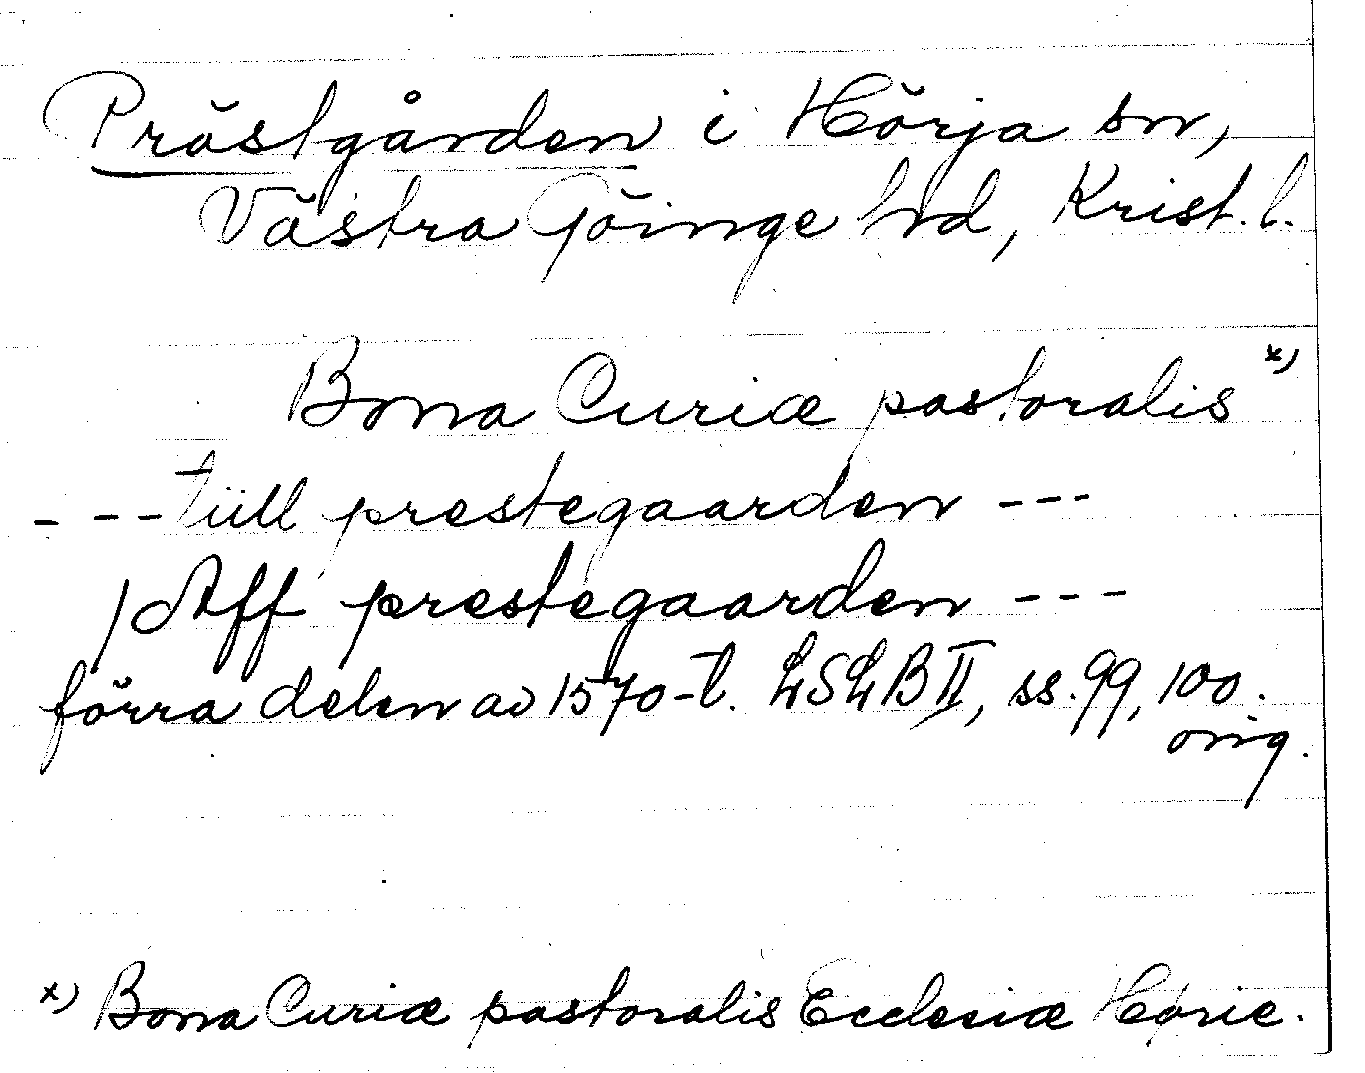 Prästgården i Hörja sn,
Västra Göinge hd, Krist. l.
Bona Curiæ pastoralis x)
- - - tiill prestegaarden - - -
/ Aff prestegaarden - - -
förra delen av 1570-t. LSLB II, ss. 99, 100.
orig.
x) Bona Curiæ pastoralis Ecclesiæ Hørie.